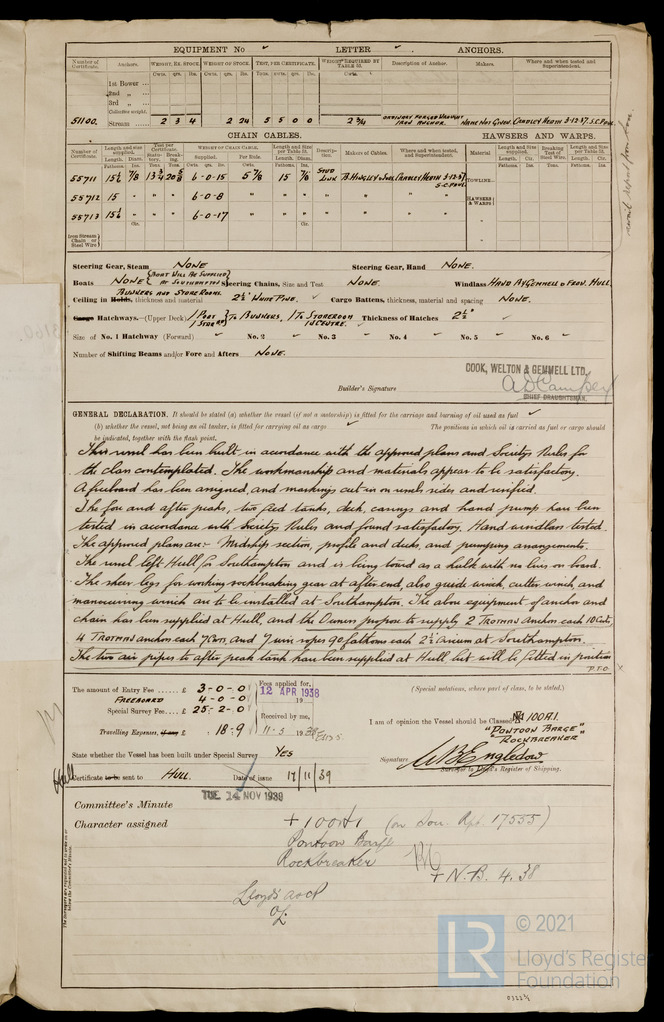 EQUIPMENT No LETTER ANCHORS.
Number of Certificate. Anchors. WEIGHT, EX. STOCK. WEIGHT OF STOCK. TEST, PER CERTIFICATE. WEIGHT REQUIRED BY TABLE 53. Description of Anchor. Makers. Where and when tested and Superintendent.
Cwts. qrs. lbs. Cwts. qrs. lbs. Tons. cwts. qrs. lbs. Cwts.
1st Bower
2nd „
3rd „
Collective weight.
51100. Stream 2 3 4 2 24 5 5 0 0 2 3/4 ORDINARY FORGED WROUGHT IRON ANCHOR. NAME NOT GIVEN. CRADLEY HEATH 3-12-37. S.C. PAUL
CHAIN CABLES. HAWSERS AND WARPS.
Number of Certificate. Length and size supplied. Test per Certificate. WEIGHT OF CHAIN CABLE. Length and Size per Table 53. Description. Makers of Cables. Where and when tested, and Superintendent. Material Length and size supplied. Breaking Test of Steel Wire. Length and Size per Table 53.
Fathoms. Diam. Statutory. Breaking. Supplied. Per Rule. Length. Diam. Fathoms. Cir. Tons. Fathoms. Cir.
55711 15½ 7/8 6-0-15 5 7/8 15 7/8 STUD LINK B. HINGLEY & SONS CRADLEY HEATH 3-12-37 S.C. PAUL TOWLINE
55712 15 " 6-0-8 " " " " " " HAWSERS & WARPS
55713 15½ " 6-0-17 " " " " " "
Iron Stream Chain or Steel Wire
Steering Gear, Steam NONE Steering Gear, Hand NONE.
Boats NONE {BOAT WILL BE SUPPLIED AT SOUTHAMPTON Steering Chains, Size and Test NONE. Windlass HAND BY GEMMELL & FROW. HULL.
BUNKERS AND STOREROOMS.
Ceiling in Holds, thickness and material 2½" WHITE PINE. Cargo Battens, thickness, material and spacing NONE.
Cargo Hatchways.—(Upper Deck) 1 PORT 1 STARBD } TO BUNKERS, 1 TO STOREROOM IN CENTRE. Thickness of Hatches 2½"
Size of No. 1 Hatchway (Forward) No. 2 No. 3 No. 4 No. 5 No. 6
Number of Shifting Beams and/or Fore and Afters NONE.
COOK, WELTON & GEMMELL LTD.
Builder's Signature
CHIEF DRAUGHTSMAN.
GENERAL DECLARATION. It should be stated (a) whether the vessel (if not a motorship) is fitted for the carriage and burning of oil used as fuel
(b) whether the vessel, not being an oil tanker, is fitted for carrying oil as cargo The positions in which oil is carried as fuel or cargo should
be indicated, together with the flash point.
This vessel has been built in accordance with the approved plans and Society's Rules for
the class contemplated. The workmanship and materials appear to be satisfactory.
A freeboard has been assigned, and markings cut in on vessels sides and verified.
The fore and after peaks, two feed tanks, deck, casings and hand pump have been
tested in accordance with Society's Rules and found satisfactory. Hand windlass tested.
The approved plans are:- Midship section, profile and decks, and pumping arrangements.
The vessel left Hull for Southampton and is being towed as a hulk with no lives on board.
The sheer legs for working rockbreaking gear at after end, also guide winch, cutter winch, and
manoeuvring winch are to be installed at Southampton. The above equipment of anchor and
chain has been supplied at Hull, and the Owners propose to supply 2 TROTMAN Anchors each 10 Cwts,
4 TROTMAN anchors each 7 Cwts, and 7 wire ropes 90 fathoms each 2½" circum at Southampton.
The two air pipes to after peak tank have been supplied at Hull but will be fitted in position
P.T.O.
The amount of Entry Fee .... £ 3-0-0
FREEBOARD 4-0-0
Special Survey Fee .... £ 25-2-0
Travelling Expenses, £ 18-9
Fees applied for, 12 APR 1938
Received by me,
11-5 1938
(Special notations, where part of class, to be stated.)
I am of opinion the Vessel should be Classed ✠ 100A1.
"PONTOON BARGE"
"ROCKBREAKER"
State whether the Vessel has been built under Special Survey YES
Signature W B Engledow
Surveyor to Lloyd's Register of Shipping.
Certificate to be sent to HULL. Date of issue 17/11/39
TUE 14 NOV 1939
Committee's Minute
Character assigned + 100A1 (on Sou. Rpt. 17555)
Pontoon Barge
Rockbreaker
+ N.B. 4.38
Lloyds a & C P
© 2021
LR Lloyd's Register
Foundation